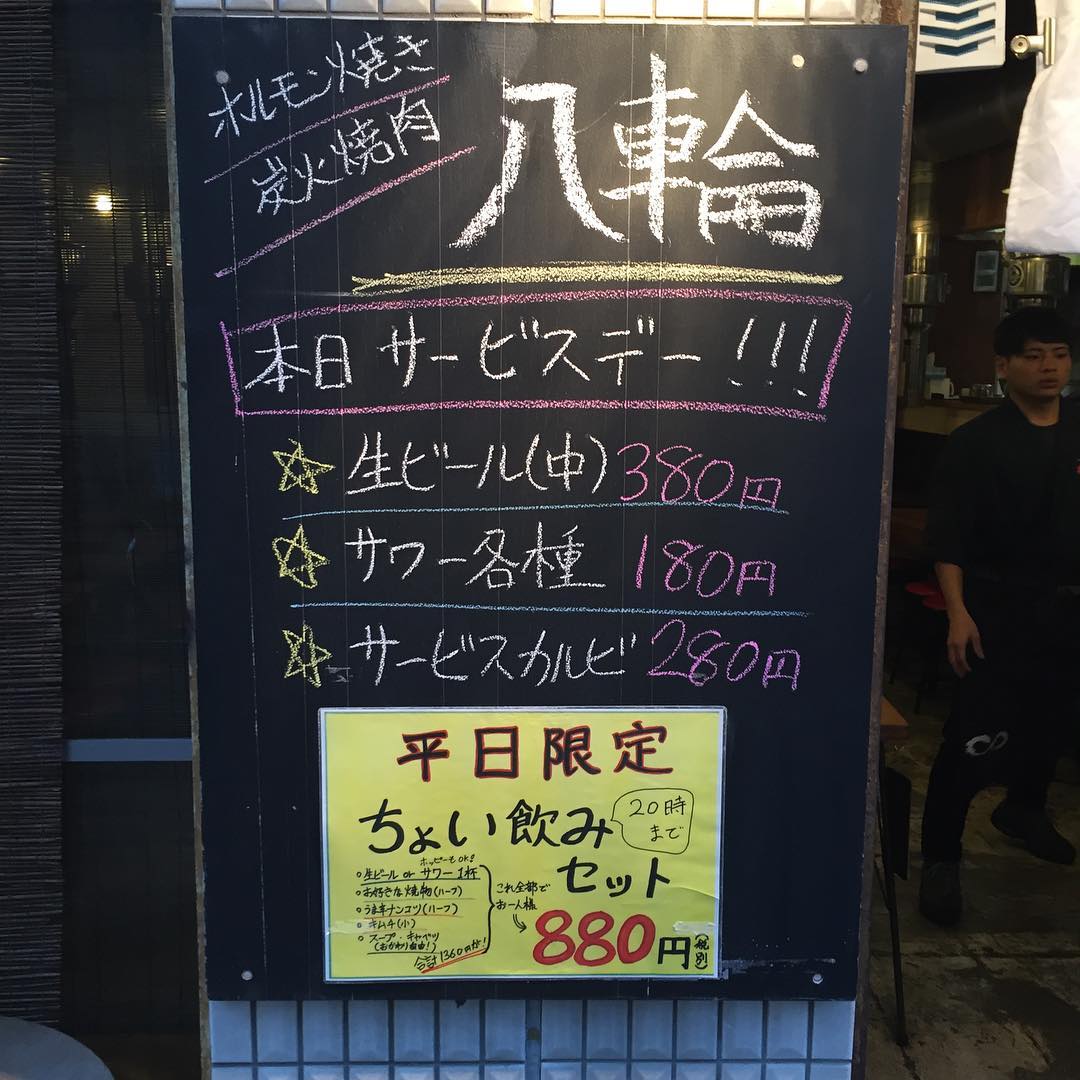 ホルモン焼き
炭火焼肉
八輪
本日サービスデー!!!
生ビール(中)380円
サワー各種 180円
サービスカルビ 280円
平日限定
ちょい飲み
20時
まで
セット
ホッピーもOK!
○生ビール or サワー 1杯
○お好きな焼物(ハーフ)
○うま辛ナンコツ(ハーフ)
○キムチ(小)
○スープ・キャベツ
(おかわり自由!)
合計1360円が!
これ全部で
お一人様
880円(税別)